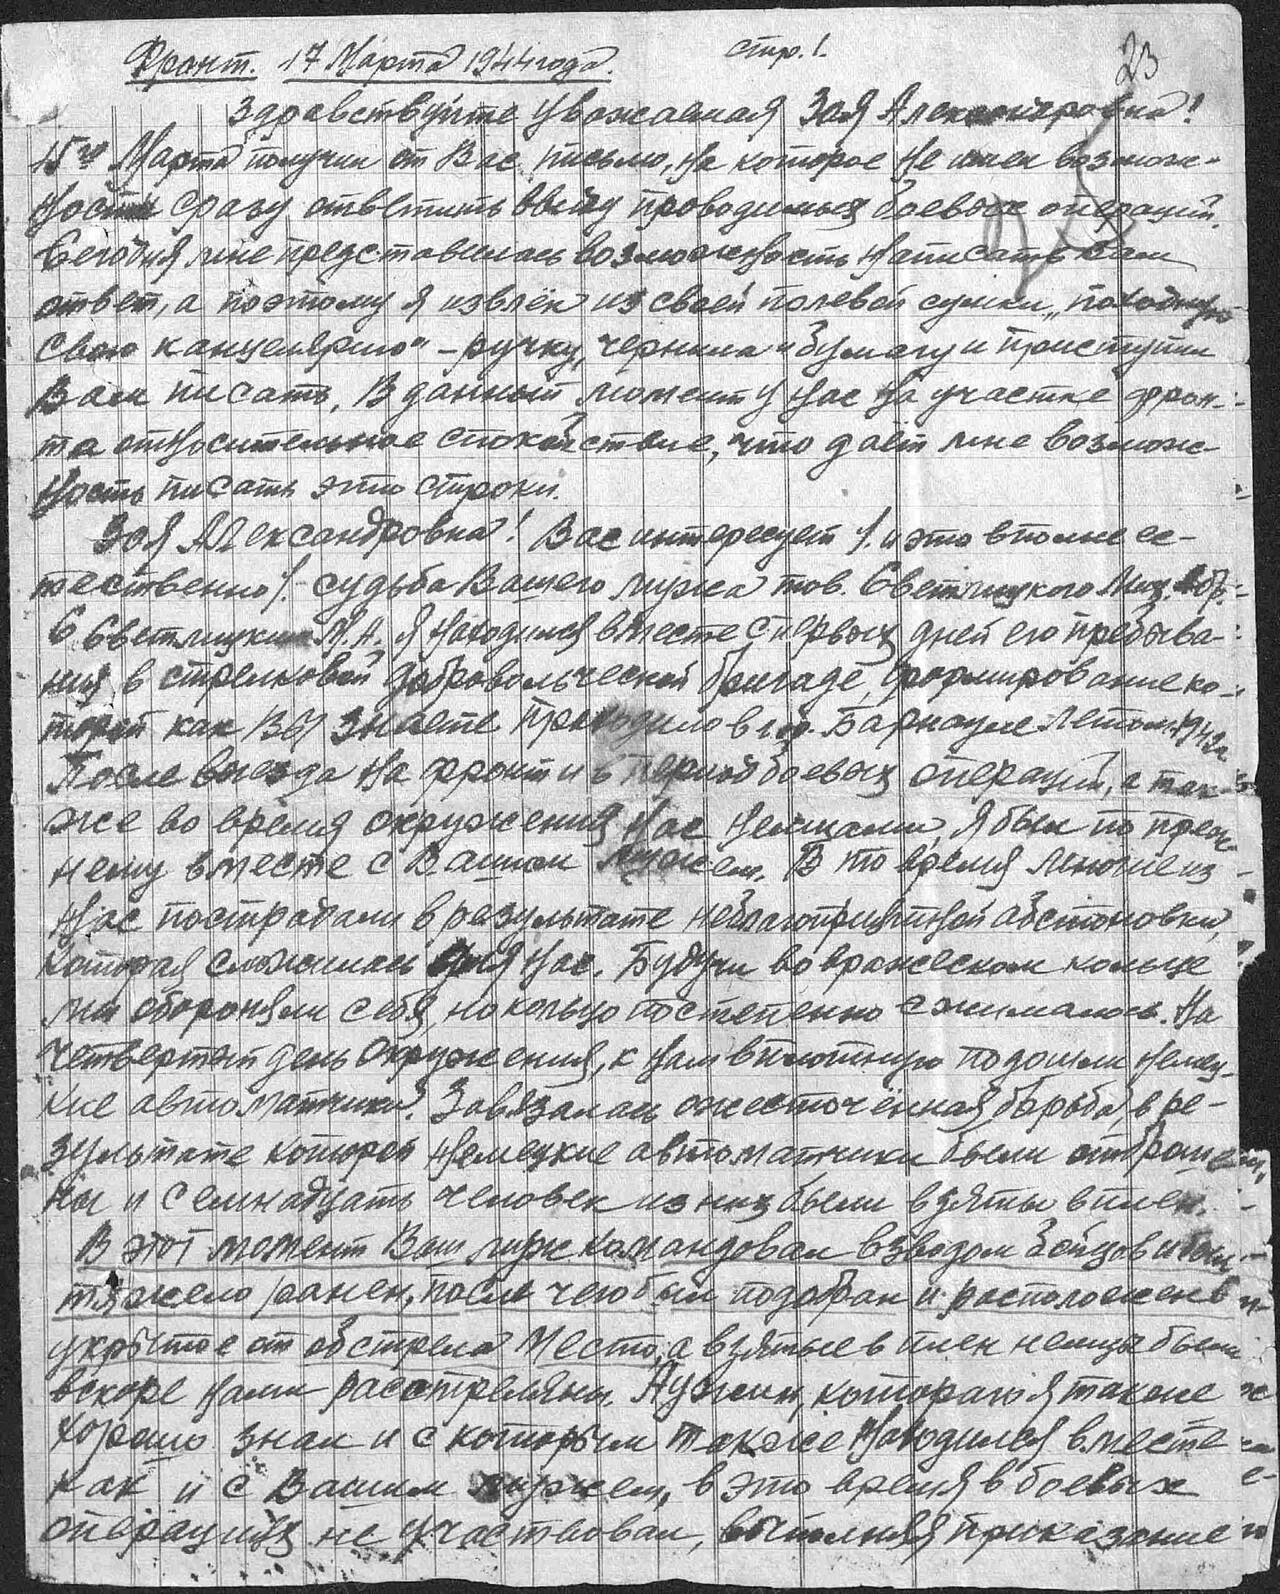 Фронт. 17 Марта 1944 года. стр. 1. 23
Здравствуйте уважаемая Зоя Александровна!
15го Марта получил от Вас письмо, на которое не имел возмож-
ности сразу ответить ввиду проводимых боевых операций.
Сегодня мне представилась возможность написать Вам
ответ, а поэтому я извлёк из своей полевой сумки „походную
свою канцелярию" – ручку, чернила и бумагу и приступил
Вам писать. В данный момент у нас на участке фрон-
та относительное спокойствие, что даёт мне возмож-
ность писать эти строки.
Зоя Александровна! Вас интересует /и это вполне ес-
тественно/ судьба Вашего мужа тов. Светлицкого Мих.
С Светлицким М.А. я находился вместе с первых дней его пребыва-
ния в стрелковой добровольческой бригаде, формирование ко-
торой как Вы знаете проходило в гор. Барнауле летом 1942г
После выезда на фронт и в период боевых операций, а так-
же во время окружения нас немцами, я был по преж-
нему вместе с Вашим мужем. В то время многие из
нас пострадали в результате неблагоприятной обстановки,
которая сложилась для нас. Будучи во вражеском кольце
мы обороняли себя, но кольцо постепенно сжималось. На
четвертый день окружения, к нам вплотную подошли немец-
кие автоматчики. Завязалась ожесточённая борьба, в ре-
зультате которой немецкие автоматчики были отброше-
ны и семнадцать человек из них были взяты в плен.
В этот момент Ваш муж командовал взводом бойцов и был
тяжело ранен, после чего был подобран и расположен в
укрытое от обстрела место, а взятые в плен немцы были
вскоре нами расстреляны. Лужин, которого я также
хорошо знал и с которым также находился вместе
как и с Вашим мужем, в это время в боевых
операциях не участвовал, выполняя приказание